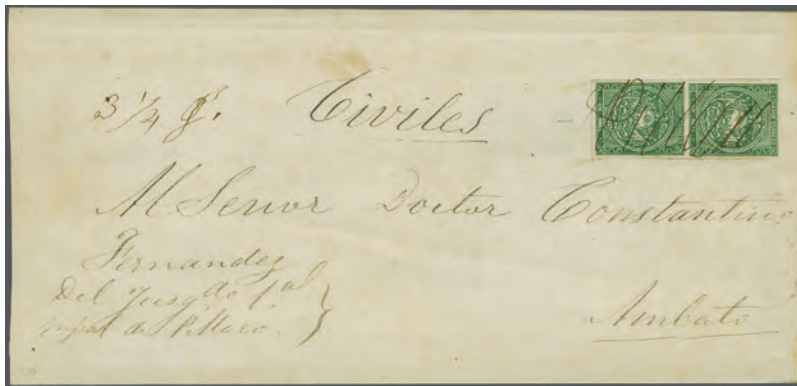 3 1/4 
Civiles
Al Senor Doctor Constantino
Fernandez
Del Juzgdo 1al
de Pillaro.
Ambato